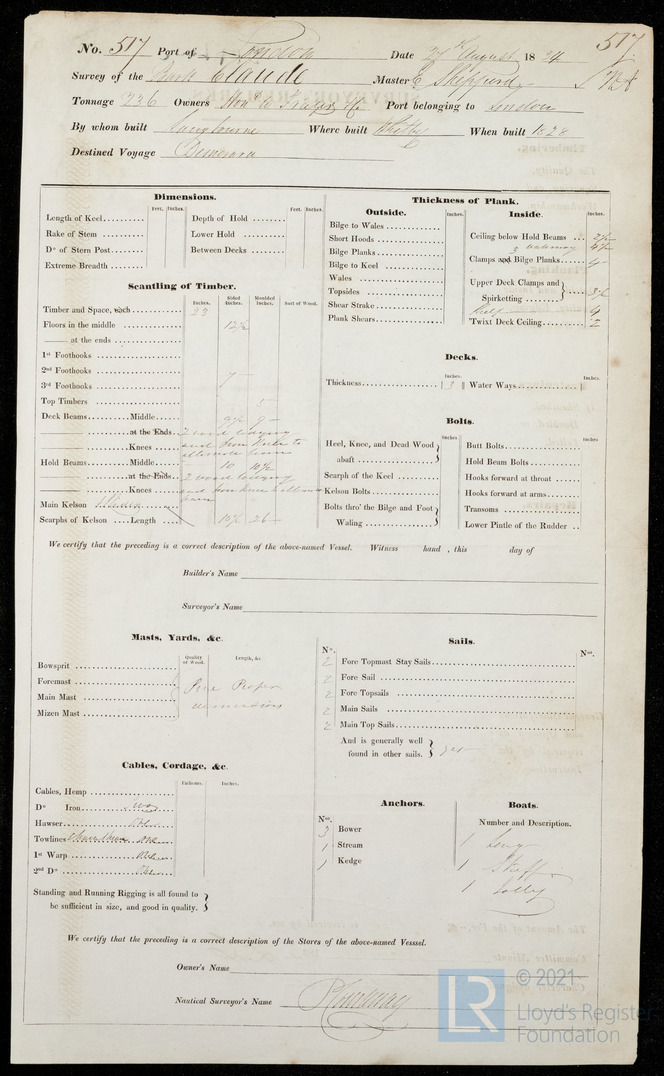 No. 517 Port of London Date 27th August 18 34 517
Survey of the Bark Claude Master E Shepperd
Tonnage 236 Owners Port belonging to London
By whom built Langbourne Where built Whitby When built 1828
Destined Voyage Demerara
Dimensions.
Feet. Inches. Feet. Inches.
Length of Keel Depth of Hold
Rake of Stem Lower Hold
Do of Stern Post Between Decks
Extreme Breadth
Scantling of Timber.
Inches. Sided Inches. Moulded Inches. Sort of Wood.
Timber and Space, each 22
Floors in the middle 12½
at the ends
1st Foothooks
2nd Foothooks
3rd Foothooks 7
Top Timbers 5
Deck Beams Middle 9½ 9
at the Ends 2 wood lodging
Knees and Iron Knee to alternate beam
Hold Beams Middle 10 10½
at the Ends 2 wood lodging
Knees and Iron knee beam
Main Kelson
Scarphs of Kelson Length 10½ 26
Thickness of Plank.
Outside.
Inches.
Bilge to Wales
Short Hoods
Bilge Planks
Bilge to Keel
Wales
Topsides
Shear Strake
Plank Shears
Inside.
Inches.
Ceiling below Hold Beams 2½
Clamps and Bilge Planks 4
Upper Deck Clamps and
Spirketting 3½
Shelf 4
'Twixt Deck Ceiling 2
Decks.
Inches. Inches.
Thickness 3 Water Ways
Bolts.
Inches Inches
Heel, Knee, and Dead Wood
abaft
Scarph of the Keel
Kelson Bolts
Bolts thro' the Bilge and Foot
Waling
Butt Bolts
Hold Beam Bolts
Hooks forward at throat
Hooks forward at arms
Transoms
Lower Pintle of the Rudder
We certify that the preceding is a correct description of the above-named Vessel. Witness hand , this day of
Builder's Name
Surveyor's Name
Masts, Yards, &c.
Quality of Wood. Length, &c
Bowsprit
Foremast Pine Proper
Main Mast dimensions
Mizen Mast
Sails.
No. Nos.
2 Fore Topmast Stay Sails
2 Fore Sail
2 Fore Topsails
2 Main Sails
2 Main Top Sails
And is generally well
found in other sails. yes
Cables, Cordage, &c.
Fathoms. Inches.
Cables, Hemp
Do Iron two
Hawser
Towlines one
1st Warp
2nd Do
Standing and Running Rigging is all found to
be sufficient in size, and good in quality.
Anchors.
No.
3 Bower
1 Stream
1 Kedge
Boats.
Number and Description.
1 Long
1 Skiff
1 Jolly
We certify that the preceding is a correct description of the Stores of the above-named Vesssel.
Owner's Name
Nautical Surveyor's Name
© 2021
LR Lloyd's Register
Foundation